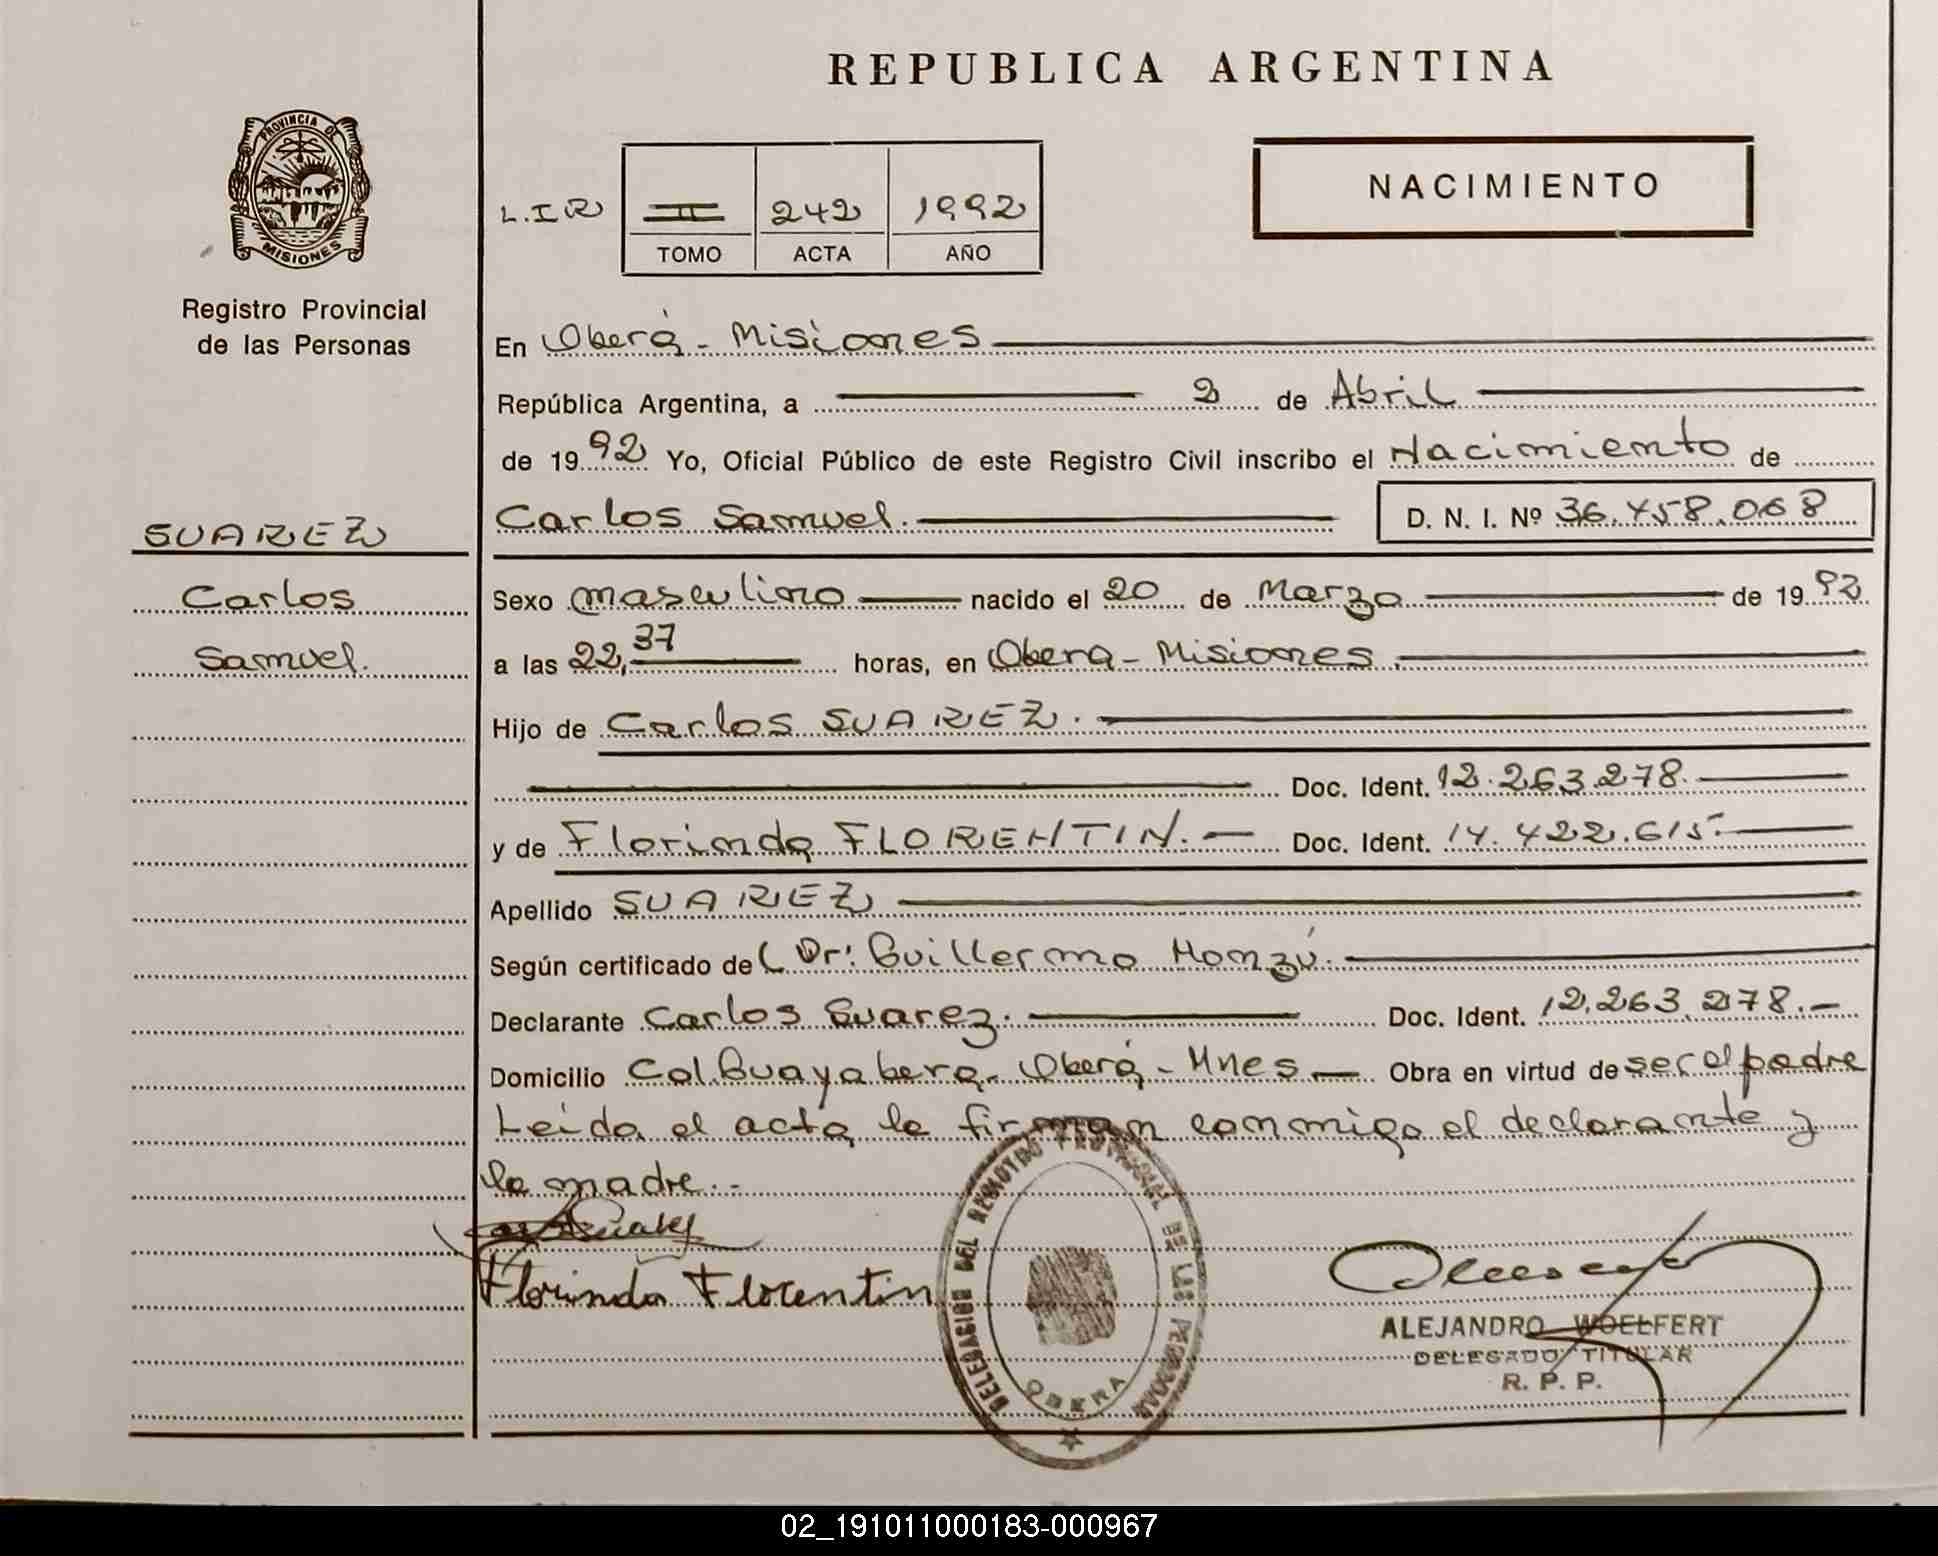 REPUBLICA ARGENTINA
PROVINCIA DE
MISIONES
Registro Provincial
de las Personas
NACIMIENTO
L.I.R II 242 1992
TOMO ACTA AÑO
En Oberá - Misiones
República Argentina, a 2 de Abril
de 1992 Yo, Oficial Público de este Registro Civil inscribo el Nacimiento de
Carlos Samuel. D. N. I. Nº 36.458.068
SUAREZ
Carlos
Samuel.
Sexo masculino nacido el 20 de Marzo de 1992
a las 22,37 horas, en Obera - Misiones
Hijo de Carlos SUAREZ.
Doc. Ident. 12.263.278.
y de Florinda FLORENTIN. Doc. Ident. 14.422.615.
Apellido SUAREZ
Según certificado de Dr: Guillermo Monzú.
Declarante Carlos Suarez. Doc. Ident. 12.263.278.-
Domicilio Col. Guayabera. Oberá - Mnes Obra en virtud de ser el padre
Leida el acta la firman conmigo el declarante y
la madre.-
Florinda Florentin
DELEGACION DEL REGISTRO PROVINCIAL DE LAS PERSONAS
OBERA
ALEJANDRO WOELFERT
DELEGADO TITULAR
R. P. P.
02_191011000183-000967